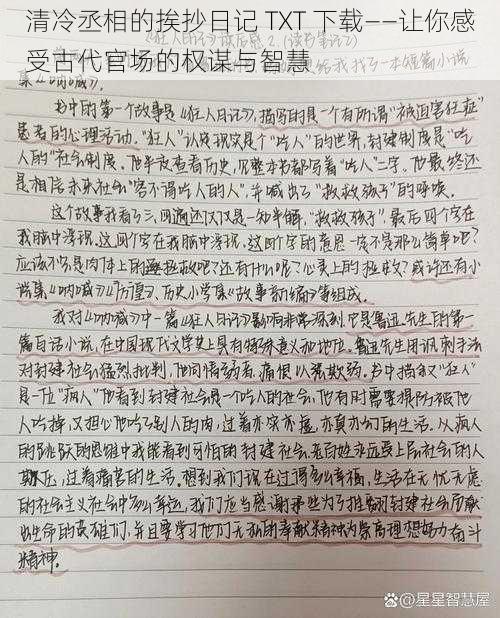 清冷丞相的挨抄日记 TXT 下载——让你感
受古代官场的权谋与智慧
《狂人日记》读后感2.(读书笔记2)
给我找了一本短篇小说
集《呐喊》
书中的第一个故事是《狂人日记》,描写的是一个有所谓“被迫害狂症”
患者的心理活动。“狂人”认为现实是个“吃人”的世界,封建制度是“吃
人的”社会制度。他半夜查看历史,沉整本书都写着“吃人”二字。他最终还
是相信未来社会“容不得吃人的人”,并喊出了“救救孩子”的呼唤。
这个故事我看了三、四遍还仅仅是一知半解,“救救孩子”最后四个字在
我脑中浮现。这四个字在我脑中浮现。这四个字的意思一定不是那么简单吧?
应该不只是肉体上的拯救吧?还有什么呢?心灵上的拯救?或许还有小
说集《呐喊》《彷徨》、历史小学集《故事新编》等组成。
我对《呐喊》中一篇《狂人日记》影响非常深刻,它是鲁迅先生的第一
篇白话小说,在中国现代文学史上具有特殊意义和地位。鲁迅先生用讽刺手法
对封建社会猛烈批判,他同情弱者,痛恨以强欺弱。书中描叙“狂人”
是一位“病人”他看到封建社会是一个吃人的社会,他有时需要提防被他
人吃掉,又担心他吃了别人的肉,过着亦实亦虚,亦真亦幻的生活。从病人
的思维中我能看到可怕的封建社会,老百姓永远受上层社会的人
欺压,过着痛苦的生活。想到我们现在过得多么幸福,生活在无忧无虑
的社会主义社会中多么幸运,我们应当感谢那些为了推翻封建社会而献
出生命的英雄们,并且要学习他们无私的奉献精神为崇高理想努力奋斗
精神。
星星智慧屋